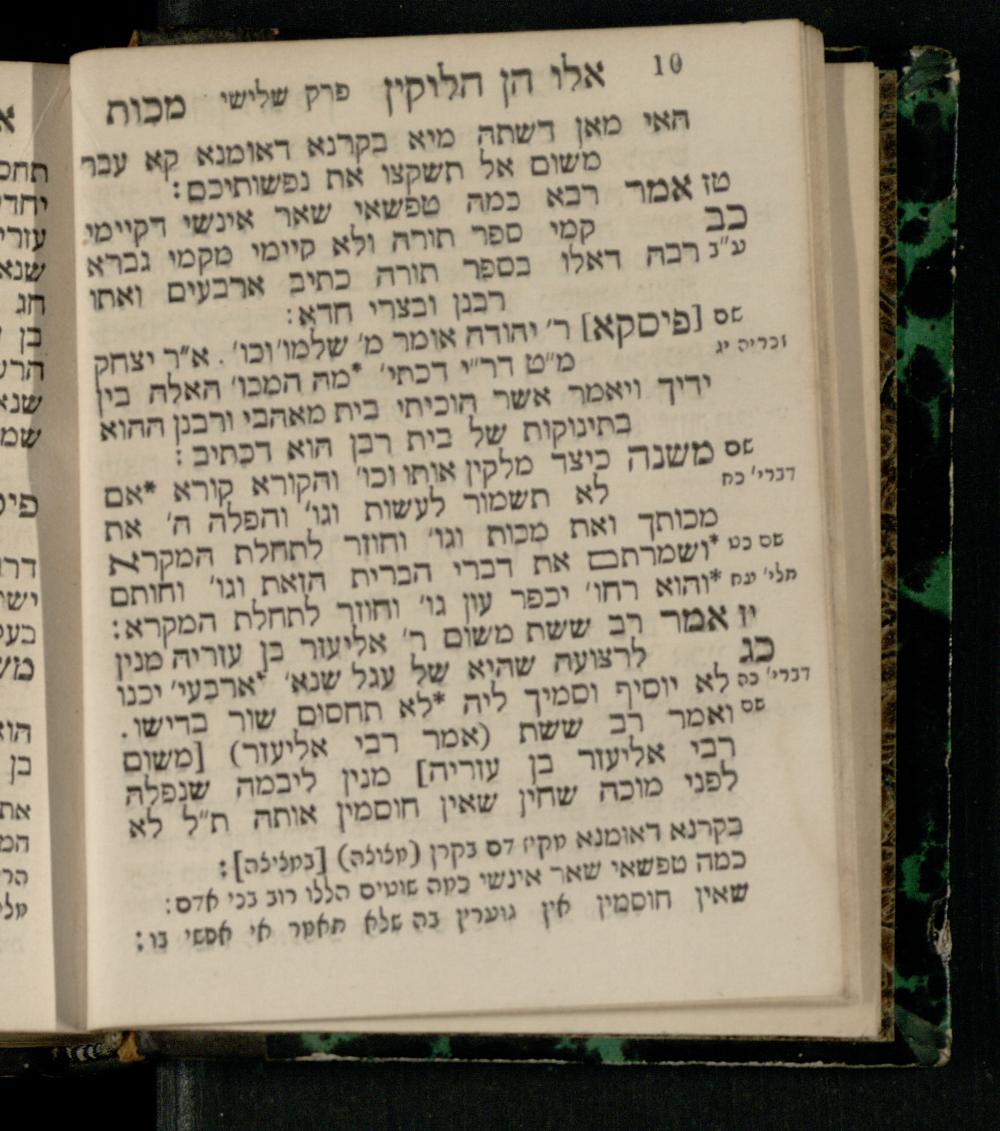 10 אלו הן הלוקין פרק שלישי מכות
האי מאן דשתה מיא בקרנא דאומנא קא עבר
משום אל תשקצו את נפשותיכם:
טז אמר רבא כמה טפשאי שאר אינשי דקיימי
כב קמי ספר תורה ולא קיימי מקמי גברא
ע"ב רבה דאלו בספר תורה כתיב ארבעים ואתו
רבנן ובצרי חדא:
שם [פיסקא] ר' יהודה אומר מ' שלמו' וכו'. א"ר יצחק
זכריה יג
מ"ט דר"י דכתי' *מה המכו' האלה בין
ידיך ויאמר אשר הוכיתי בית מאהבי ורבנן ההוא
בתינוקות של בית רבן הוא דכתיב:
שם משנה כיצד מלקין אותו וכו' והקורא קורא *אם
דברי' כח
לא תשמור לעשות וגו' והפלה ה' את
מכותך ואת מכות וגו' וחוזר לתחלת המקרא
שם כט *ושמרתם את דברי הברית הזאת וגו' וחותם
תלי' עח *והוא רחו' יכפר עון גו' וחוזר לתחלת המקרא:
יז אמר רב ששת משום ר' אליעזר בן עזריה מנין
כג לרצועה שהיא של עגל שנא' *ארבעי' יכנו
דברי' כה לא יוסיף וסמיך ליה *לא תחסום שור בדישו.
שם ואמר רב ששת (אמר רבי אליעזר) [משום
רבי אליעזר בן עזריה] מנין ליבמה שנפלה
לפני מוכה שחין שאין חוסמין אותה ת"ל לא
בקרנא דאומנא מקיז דם בקרן [במלילה]:
כמה טפשאי שאר אינשי כמה שוטים הללו רוב בני אדם:
שאין חוסמין אין גוערין בה שלא תאמר אי אפשי בו: